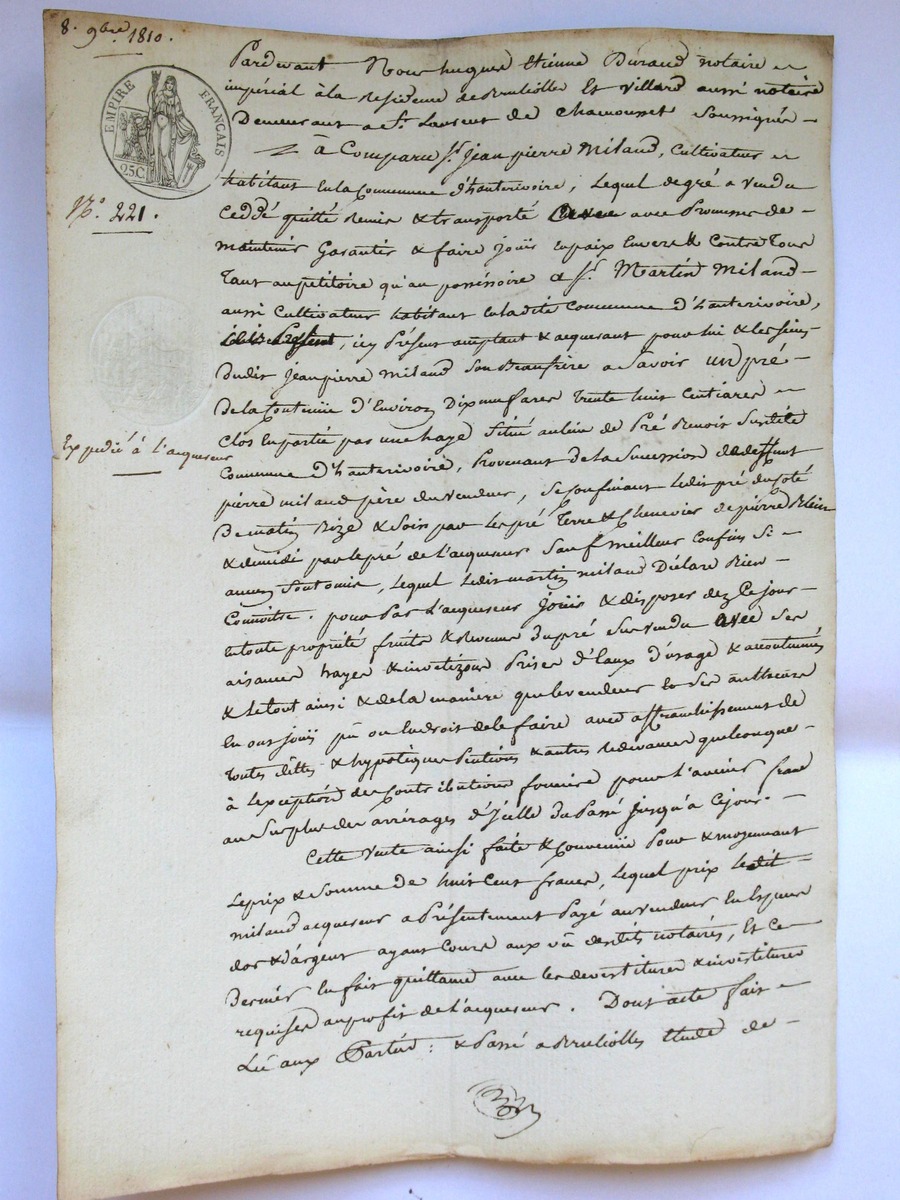 8. 9bre 1810.
EMPIRE FRANÇAIS
25C.
N.° 221.
Expedié à l'acquereur
Pardevant Nous hugues Etienne Durand notaire
impérial à la Residence de Brulliolles Et Villard aussi notaire
Demeurant a St. Laurent de Chamousset Soussignés
à Comparu Sr. Jean pierre Milaud, Cultivateur
habitant En la Commune d'hauterivoire, Lequel de gré a vendu
Ceddé quitté Remis & transporté avec Promesse de
maintenir Garantir & faire Jouir en paix Envers & Contre Tous
Tant au pétitoire qu'au possessoire a Sr. Martin Milaud
aussi Cultivateur habitant En la dite Commune d'hauterivoire,
icy Présent acceptant & acquerant pour lui & les siens
dudit Jean pierre Milaud Son Beaufrère a Savoir un pré
De la Contenüe d'Environ Dix neuf ares Trente huit Centiares
Clos En partie par une haye Situé au lieu de Pré Renoir Susdite
Commune d'hauterivoire, Provenant de la Succession de deffunt
pierre milaud père du vendeur, Se Confinant Ledit pré du Coté
De matin Bize & Soir par Les pré Terre & Chenevier de pierre
& de midi par le pré de l'acquereur Sauf meilleurs Confins Si
aucun Sont omis, Lequel Ledit martin milaud Déclare Bien
Connoitre. pour Par L'acquereur Jouir & disposer dez Ce jour
en toute propriété fruits & Revenus du pré Sus vendu avec Ses
aisances hayes & Prises d'Eaux d'usage & accoutumées
& Le tout ainsi & de la manière que le vendeur Et Ses autheurs
En ont Joüi pü ou Eu droit de le faire avec affranchissement de
Toutes dettes & hypotèques Pentions & autres Redevances quelconque
à l'exception des Contributions foncière pour l'avenir franc
au Surplus des arrérages d'Icelle du Passé Jusqu'à Cejour.
Cette Vente ainsi faite & Convenüe Pour & moyennant
Le prix & Somme de huit Cent francs, Lequel prix Ledit
milaud acquereur a Présentement Payé au vendeur En Espèces
d'or & d'argent ayant Cours aux vü desdits notaires, Et Ce
Dernier En fait quittance avec les devestitures & investitures
requises au profit de l'acquereur. Dont acte fait
Lu aux Parties : & Passé a Brulliolles Etude de